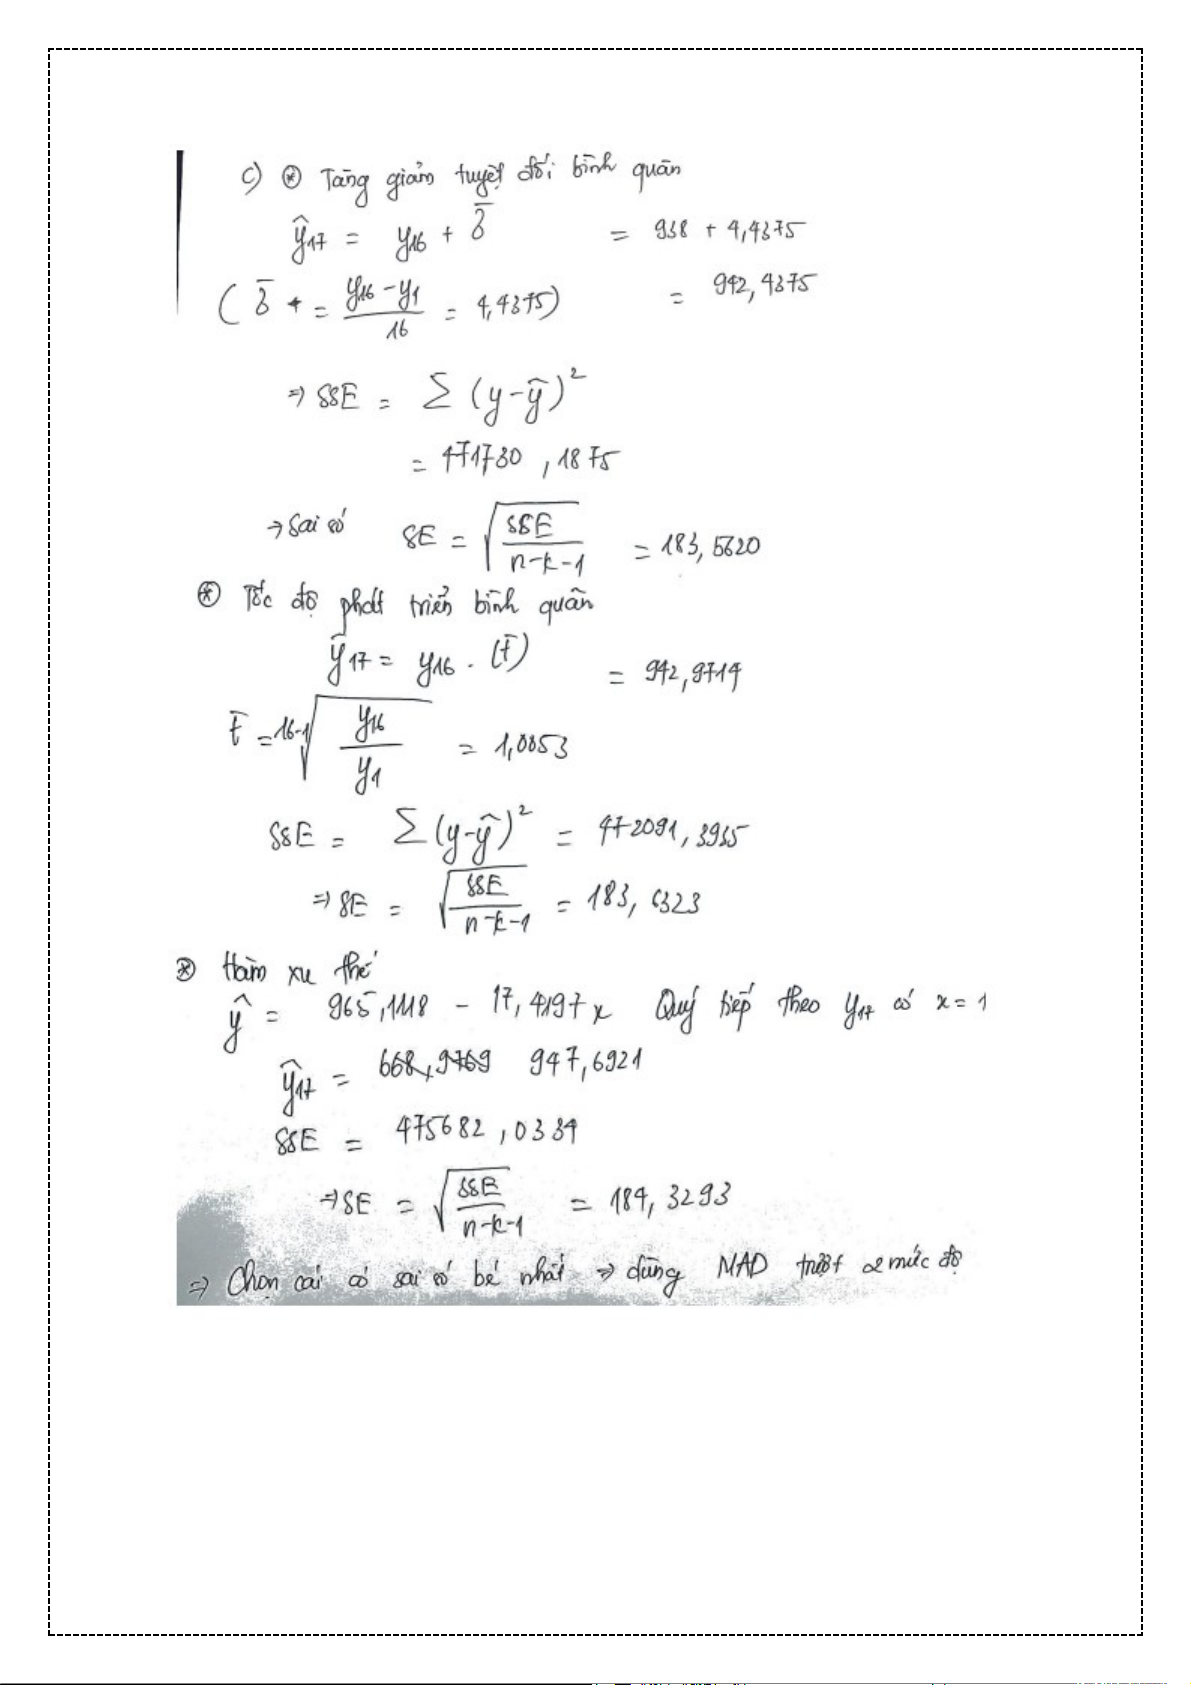 c) ⊛ Tăng giảm tuyệt đối bình quân
ŷ17 = y16 + δ̄ = 938 + 4,4375
(δ̄ = (y16 - y1)/16 = 4,4375) = 942,4375
⇒ SSE = Σ (y-ŷ)²
= 471730,1875
→ Sai số SE = √(SSE/(n-k-1)) = 183,5620
⊛ Tốc độ phát triển bình quân
ŷ17 = y16 . (t̄) = 942,9714
t̄ = ¹⁶⁻¹√(y16/y1) = 1,0053
SSE = Σ (y-ŷ)² = 472091,3935
⇒ SE = √(SSE/(n-k-1)) = 183,6323
⊛ Hàm xu thế
ŷ = 965,1118 - 17,4197x Quý tiếp theo y17 có x = 1
ŷ17 = 668,9769 947,6921
SSE = 475682,0334
⇒ SE = √(SSE/(n-k-1)) = 184,3293
⇒ Chọn cái có sai số bé nhất ⇒ dùng MAD trượt 2 mức độ